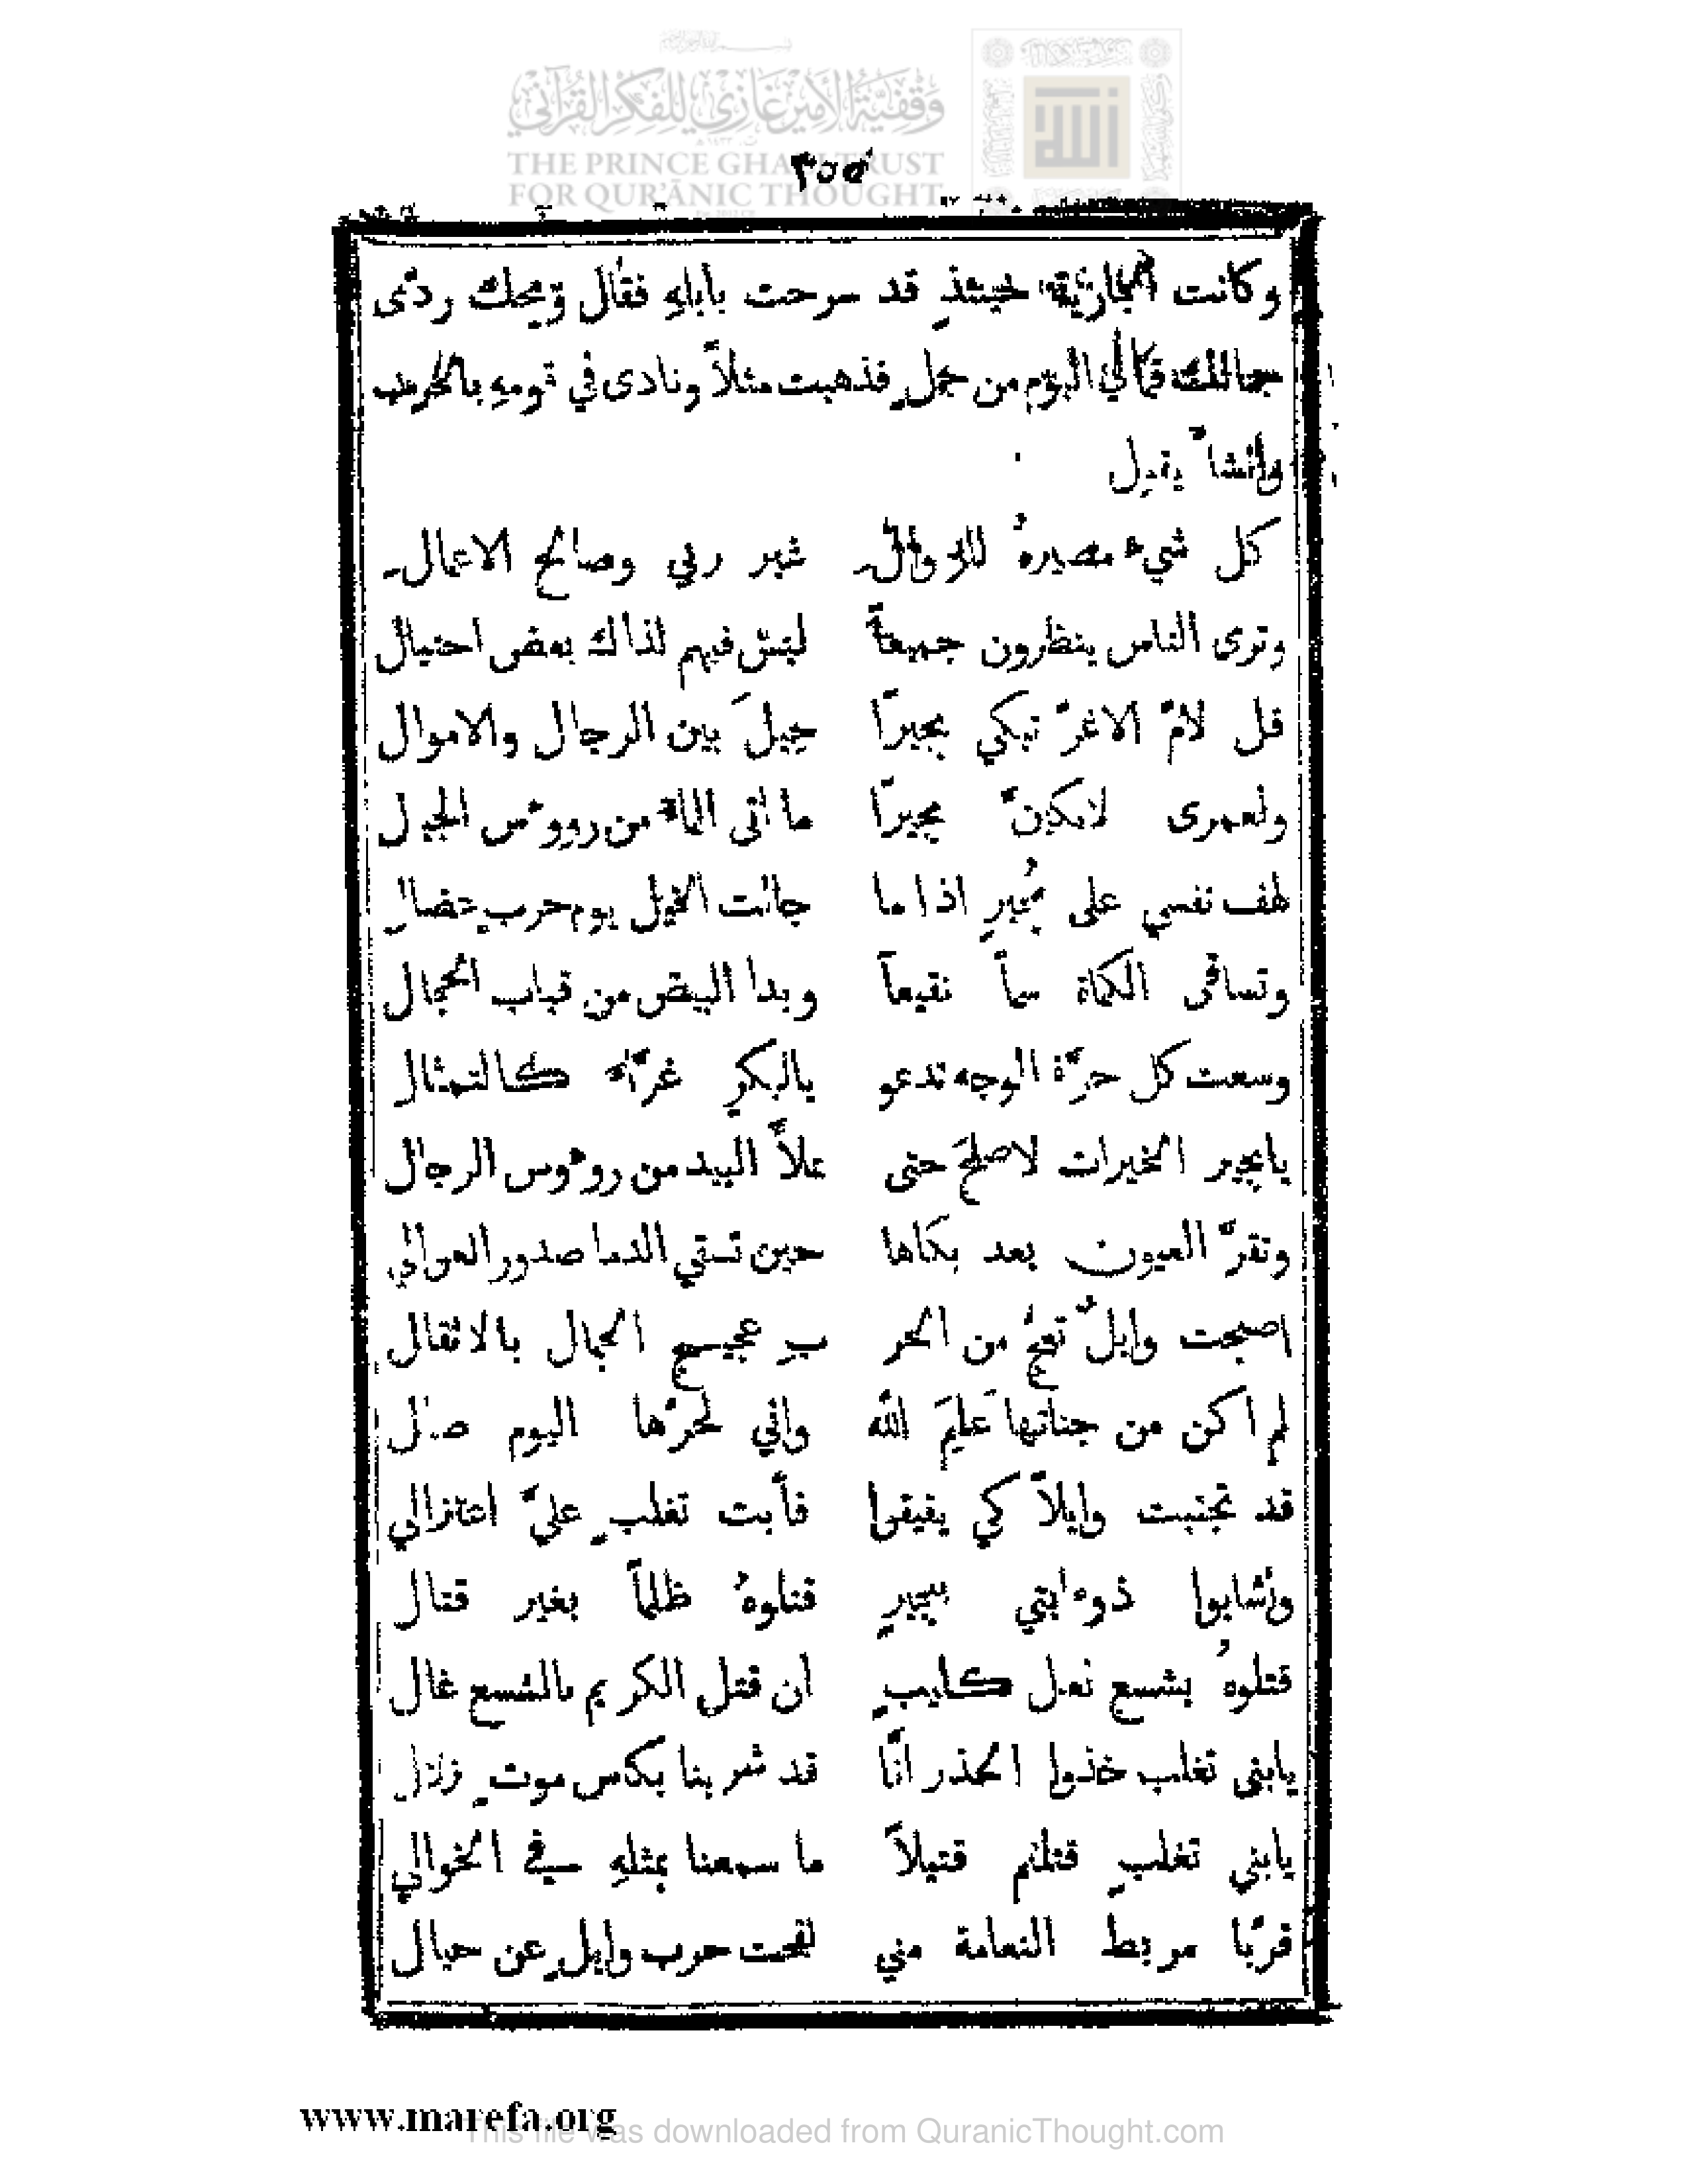 وقفية الأمير غازي للفكر القرآني
THE PRINCE GHAZI TRUST
FOR QUR'ĀNIC THOUGHT
٣٥٥
وكانت الجارية حينئذٍ قد سرحت بابلهِ فقال ويحك ردّى
جمالك فما لي اليوم من جملٍ فذهبت مثلاً ونادى في قومهِ بالحرب
وانشأ يقول
كل شيء مصيرهُ للزوالِ غير ربي وصالح الاعمالِ
وترى الناس ينظرون جميعاً ليس فيهم لذاك بعض احتيال
قل لأمّ الاغرّ تبكي بجيرًا حِيلَ بين الرجال والاموال
ولعمرى لابكينّ بجيرًا ما اتى الماء من رووٴس الجبال
لهف نفسي على بُجيرٍ اذا ما جالت الخيل يوم حربٍ عضالِ
وتساقى الكماة سماً نقيعاً وبدا البيض من قباب الحجال
وسعت كل حرّة الوجه تدعو يالبكرٍ غرّاء كالتمثال
يابجير الخيرات لاصلحَ حتى نملأَ البيد من روءوس الرجال
وتقرّ العيون بعد بكاها حين تسقي الدما صدور العوالي
اصبحت وايلٌ تعجّ من الحر بِ عجيج الجمال بالاثقال
لم اكن من جناتها عَلِمَ الله واني لحرّها اليوم صال
قد تجنبت وايلاً كي يفيقوا فأبت تغلبٍ عليّ اعتزالي
وأشابوا ذوءابتي ببجيرٍ قتلوهُ ظلماً بغير قتال
قتلوهُ بشسع نعل كليبٍ ان قتل الكريم بالشسع غال
يابني تغلب خذوا الحذر انّا قد شربنا بكاس موتٍ زلال
يابني تغلبٍ قتلتم قتيلاً ما سمعنا بمثلهِ في الخوالي
قرّبا مربط النعامة مني لقحت حرب وايلٍ عن حيال
www.marefa.org
This file was downloaded from QuranicThought.com